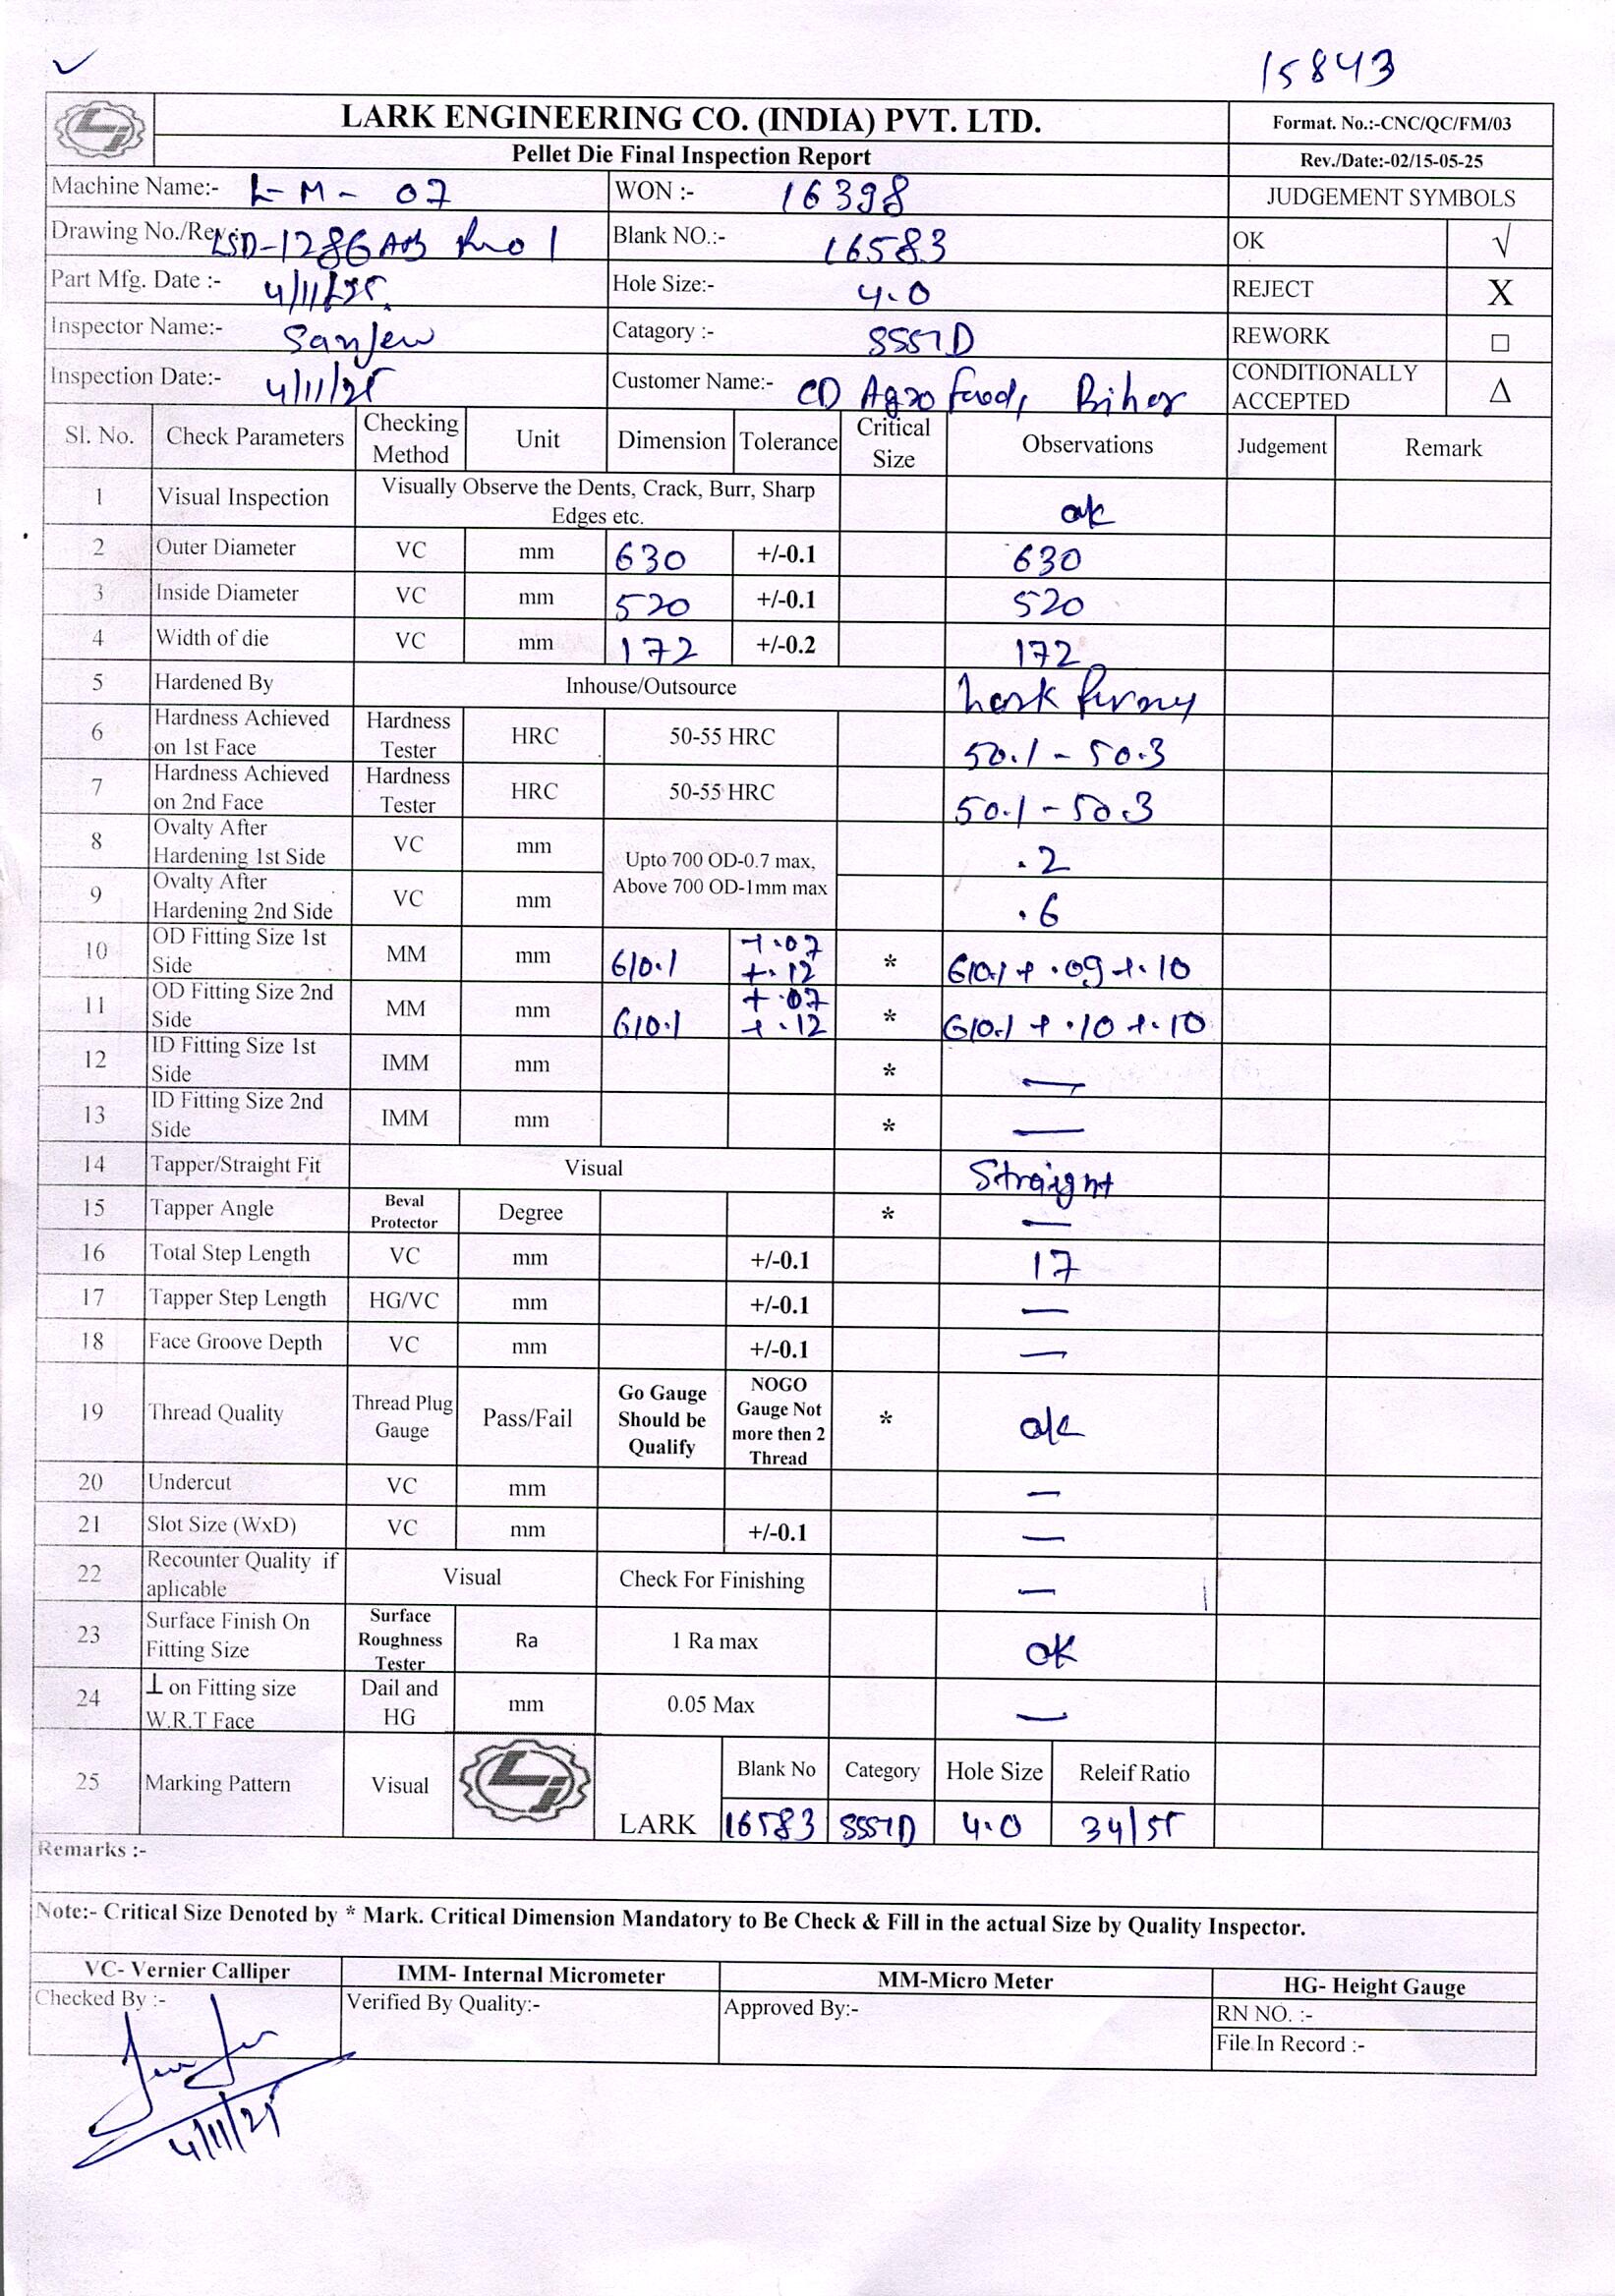 15843
LARK ENGINEERING CO. (INDIA) PVT. LTD.
Format. No.:-CNC/QC/FM/03
Pellet Die Final Inspection Report
Rev./Date:-02/15-05-25
Machine Name:- L-M-07 WON :- 16398 JUDGEMENT SYMBOLS
Drawing No./Rev.:- LSD-1286 Blank NO.:- 16583 OK √
Part Mfg. Date :- 4/11/25. Hole Size:- 4.0 REJECT X
Inspector Name:- Sanjew Catagory :- SSSTD REWORK □
Inspection Date:- 4/11/25 Customer Name:- CD Agro food, Bihar CONDITIONALLY ACCEPTED Δ
Sl. No. Check Parameters Checking Method Unit Dimension Tolerance Critical Size Observations Judgement Remark
1 Visual Inspection Visually Observe the Dents, Crack, Burr, Sharp Edges etc. ok
2 Outer Diameter VC mm 630 +/-0.1 630
3 Inside Diameter VC mm 520 +/-0.1 520
4 Width of die VC mm 172 +/-0.2 172
5 Hardened By Inhouse/Outsource Lark
6 Hardness Achieved on 1st Face Hardness Tester HRC 50-55 HRC 50.1 - 50.3
7 Hardness Achieved on 2nd Face Hardness Tester HRC 50-55 HRC 50.1 - 50.3
8 Ovalty After Hardening 1st Side VC mm Upto 700 OD-0.7 max, Above 700 OD-1mm max .2
9 Ovalty After Hardening 2nd Side VC mm .6
10 OD Fitting Size 1st Side MM mm 610.1 +.07 +.12 * 610.1 + .09 +.10
11 OD Fitting Size 2nd Side MM mm 610.1 +.07 +.12 * 610.1 + .10 +.10
12 ID Fitting Size 1st Side IMM mm * —
13 ID Fitting Size 2nd Side IMM mm * —
14 Tapper/Straight Fit Visual Straight
15 Tapper Angle Beval Protector Degree * —
16 Total Step Length VC mm +/-0.1 17
17 Tapper Step Length HG/VC mm +/-0.1 —
18 Face Groove Depth VC mm +/-0.1 —
19 Thread Quality Thread Plug Gauge Pass/Fail Go Gauge Should be Qualify NOGO Gauge Not more then 2 Thread * ok
20 Undercut VC mm —
21 Slot Size (WxD) VC mm +/-0.1 —
22 Recounter Quality if aplicable Visual Check For Finishing —
23 Surface Finish On Fitting Size Surface Roughness Tester Ra 1 Ra max ok
24 ⊥ on Fitting size W.R.T Face Dail and HG mm 0.05 Max —
25 Marking Pattern Visual LARK Blank No Category Hole Size Releif Ratio
16583 SSSTD 4.0 34/55
Remarks :-
Note:- Critical Size Denoted by * Mark. Critical Dimension Mandatory to Be Check & Fill in the actual Size by Quality Inspector.
VC- Vernier Calliper IMM- Internal Micrometer MM-Micro Meter HG- Height Gauge
Checked By :- Verified By Quality:- Approved By:- RN NO. :-
File In Record :-
4/11/25